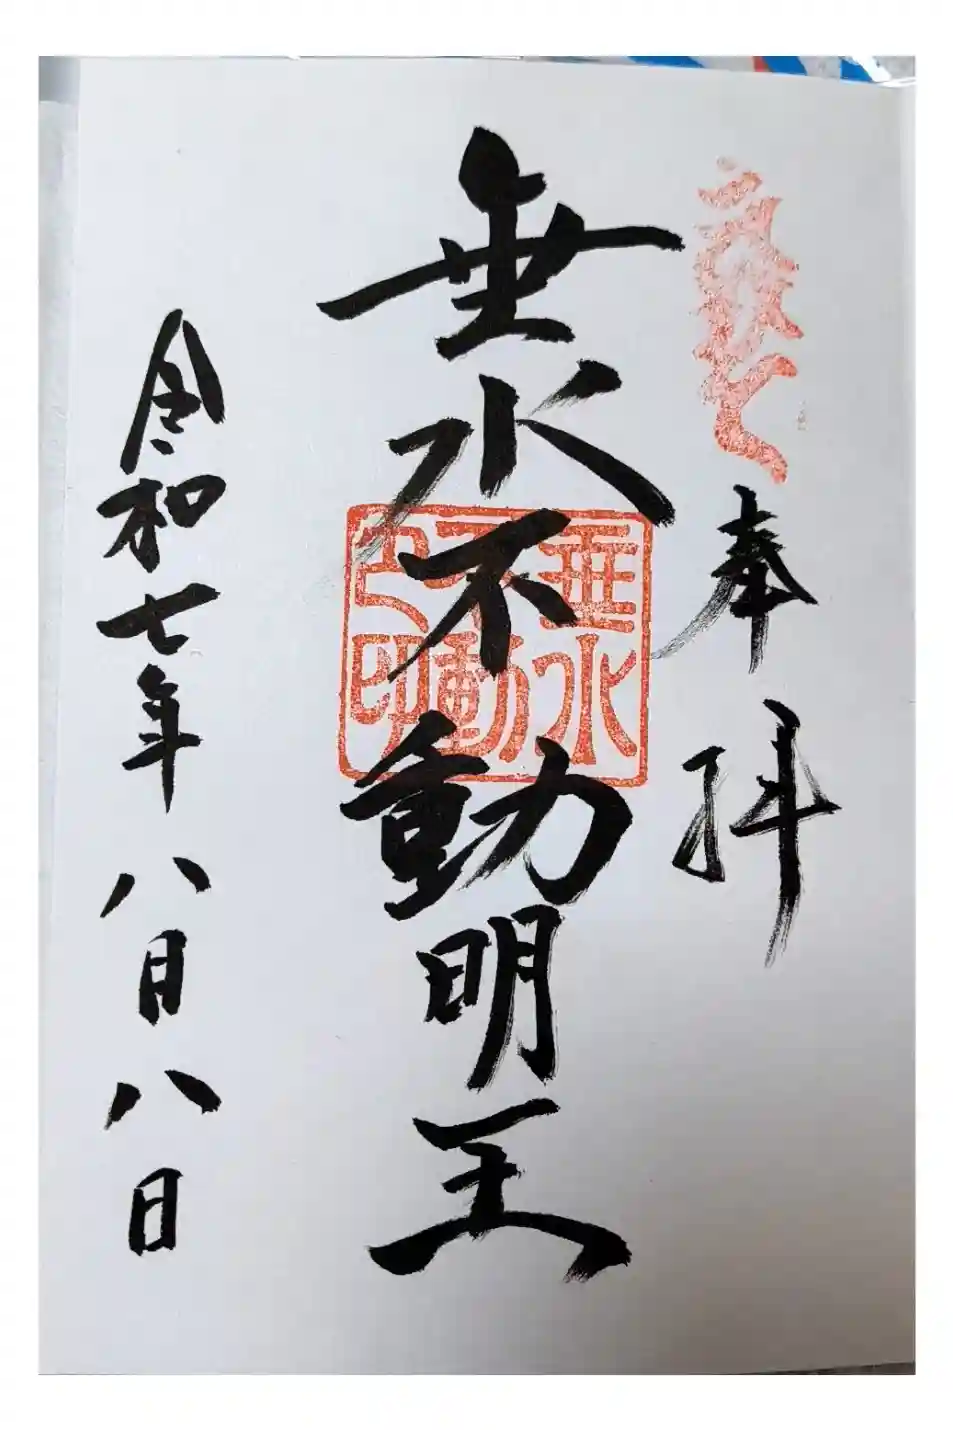 奉拝
垂水不動明王
垂水
不動
之印
令和七年八月八日